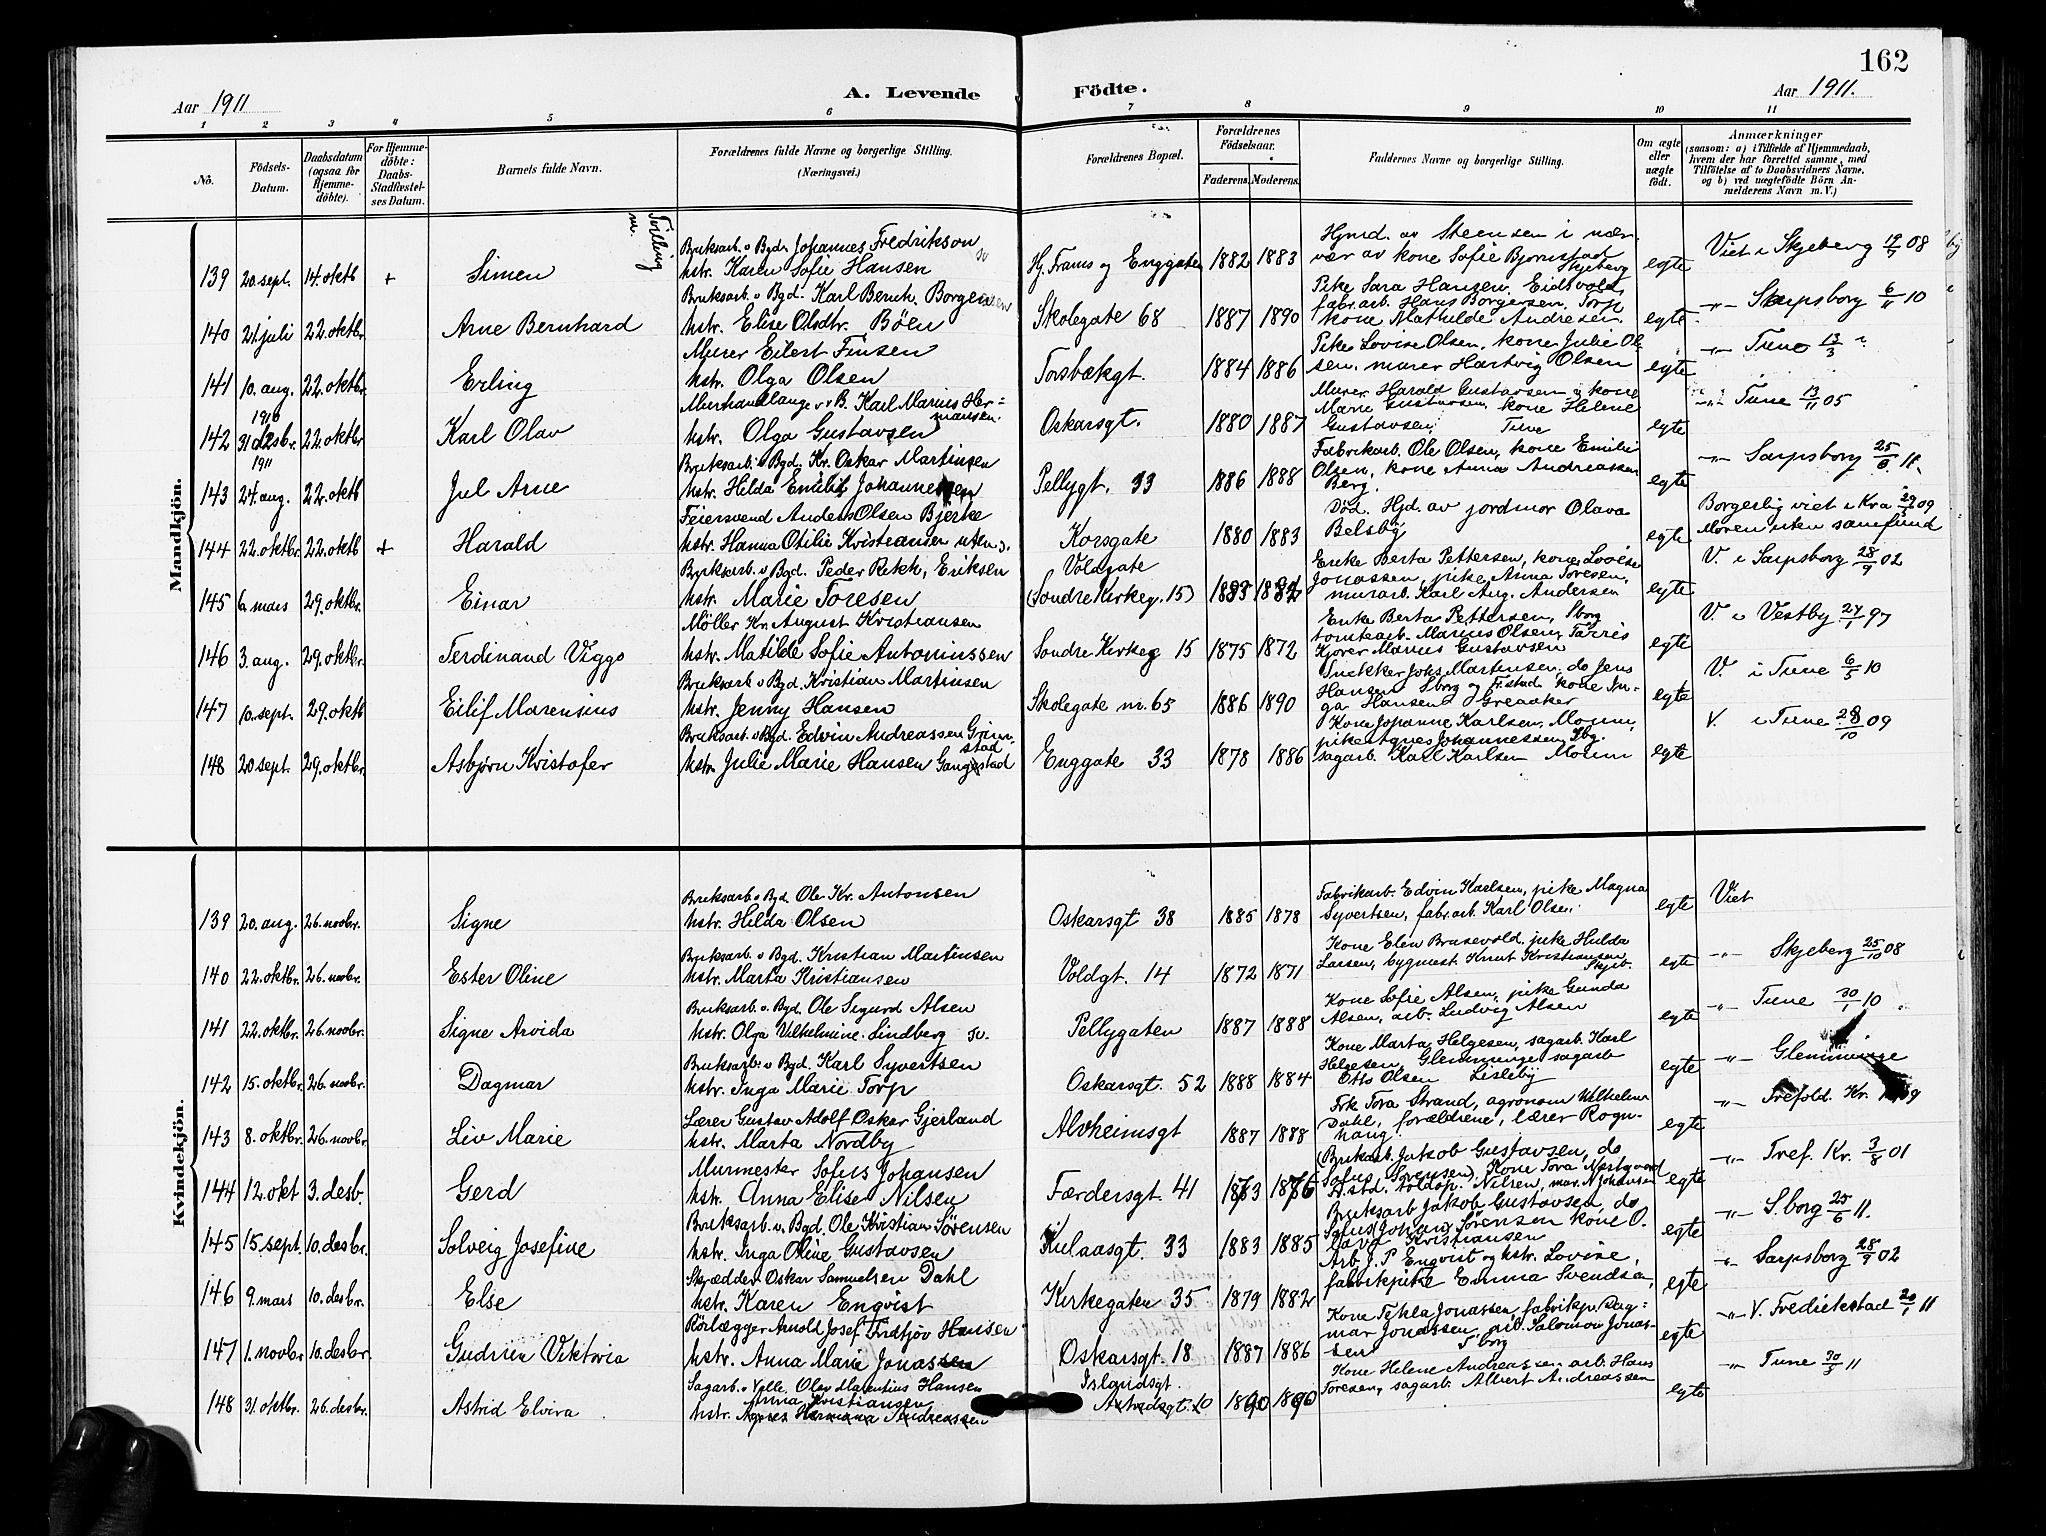 162
Aar 1911
A. Levende
Födte.
Aar 1911.
1 2 3 4 5 6 7 8 9 10 11
No.
Födsels-Datum.
Daabsdatum (ogsaa for Hjemme-döbte).
For Hjemme-döbte: Daabs-Stadfæstel-ses Datum.
Barnets fulde Navn.
Forældrenes fulde Navne og borgerlige Stilling.
(Næringsvei.)
Forældrenes Bopæl.
Forældrenes Födselsaar.
Faderens. Moderens.
Faddernes Navne og borgerlige Stilling.
Om ægte eller uægte født.
Anmærkninger
(saasom: a) i Tilfælde af Hjemmedaab, hvem der har forrettet samme, med Tilföielse af to Daabsvidners Navne, og b) ved uægtefödte Börn An-melderens Navn m. V.)
Mandkjön.
139 20. sept. 14. oktb + Simen
Bruksarb. v Bgd. Johannes Fredrikson
hstr. Karen Sofie Hansen
Hj. Frams og Enggaten 1882 1883
Hjmd. av Steensen i nær-
vær av kone Sofie Bjørnstad Skjeberg
egte
Viet i Skjeberg 08
140 21. juli 22. oktbr. Arne Bernhard
Bruksarb. v Bgd. Karl Bernh. Borgensen
hstr. Elise Olsdtr. Böen
Skolegate 68 1887 1890
Pike Sara Hansen, Eidsvold,
fabr.arb. Hans Borgersen, Torp
kone Mathilde Andresen.
egte
-"- Sarpsborg 6/11 10
141 10. aug. 22. oktbr. Erling
Murer Eilert Finsen
hstr. Olga Olsen
Torsbækgt. 1884 1886
Pike Lovise Olsen, kone Julie Ol-
sen, murer Hartvig Olsen
egte
-"- Tune 13/3
1910
142 31 desbr. 22. oktbr Karl Olav
Murhandlanger v B. Karl Marius Her-
mansen.
hstr. Olga Gustavsen
Oskarsgt. 1880 1887
Murer Harald Gustavsen og kone
Marie Gustavsen, kone Helene
Gustavsen, Tune
egte
-"- Tune 13/11 05
1911
143 24. aug. 22. oktb Jul Arne
Bruksarb. v Bgd. Kr. Oskar Martinsen
hstr. Hilda Emilie Johannesen
Pellygt. 33 1886 1888
Fabrikarb. Ole Olsen, kone Emilie
Olsen, kone Anna Andreassen
Berg.
egte
-"- Sarpsborg 11.
144 22. oktbr. 22. oktb + Harald
Feiersvend Anders Olsen Bjerke
hstr. Hanna Otilie Kristiansen
Korsgate 1880 1883
Död. Hjd. av jordmor Olava
Belsby
egte
Borgerlig viet i Kra 09
Moren uten samfund
145 6. mars 29. oktbr. Einar
Bruksarb. v Bgd. Peder Rekh. Eriksen
hstr. Marie Toresen
Voldgate
(Søndre Kirkeg. 15) 1883 1882
Enke Berta Pettersen, kone Lovise
Jonassen, pike Anna Toresen,
murarb. Karl Aug. Andersen
egte
V. i Sarpsborg 28/9 02
146 3. aug. 29. oktbr. Ferdinand Viggo
Møller Kr. August Kristiansen
hstr. Matilde Sofie Antoniussen
Søndre Kirkeg 15 1875 1872
Enke Berta Pettersen, Sborg
tomtearb. Marius Olsen, Tarris
Kjører Marius Gustavsen
egte
V. i Vestby 97
147 10. sept. 29. oktb Eilif Marensius
Bruksarb v Bgd. Kristian Martinsen
hstr. Jenny Hansen
Skolegate nr. 65 1886 1890
Snekker Johs Martinsen, do Jens
Hansen Sborg og Fr.stad kone In-
ga Hansen Greaaker
egte
V. i Tune 6/5 10
148 20 sept. 29. oktbr. Asbjørn Kristofer
Bruksarb. v Bgd. Edvin Andreassen Grim-
stad
hstr. Julie Marie Hansen
Enggate 33 1878 1886
Kone Johanne Karlsen, Moum,
pike Agnes Johannessen, Sbg.
sagarb. Karl Karlsen Moum
egte
V. i Tune 09
Kvindekjön.
139 20. aug. 26. novbr. Signe
Bruksarb v Bgd. Ole Kr. Antonsen
hstr. Hilda Olsen
Oskarsgt 38 1885 1878
Fabrikarb. Edvin Karlsen, pike Magna
Syvertsen, fabr.arb. Karl Olsen.
egte
Viet
140 22. oktbr. 26. novbr. Ester Oline
Bruksarb. v Bgd. Kristian Martinsen
hstr. Marta Kristiansen
Voldgt. 14 1872 1871
Kone Elen Brusevold, pike Hulda
Larsen, bygmest. Knut Kristiansen
Skjeb.
egte
-"- Skjeberg 25/10 08
141 22. oktbr. 26. novbr. Signe Arvida
Bruksarb. v. Bgd. Ole Sigurd Alsen
hstr. Olga Vilhelmine Lindberg
Pellygaten 1887 1888
Kone Sofie Alsen, pike Gunda
Alsen, arb. Ludvig Alsen
egte
-"- Tune 10
142 15. oktbr. 26. novbr. Dagmar
Bruksarb. v Bgd. Karl Syvertsen
hstr. Inga Marie Torp
Oskarsgt. 52 1888 1884
Kone Marta Helgesen, sagarb. Karl
Helgesen, Glemminge, sagarb
Otto Olsen Lisleby
egte
-"- Glemminge
143 8. oktbr. 26. novbr. Liv Marie
Lærer Gustav Adolf Oskar Gjerland
hstr. Marta Nordby
Alvheimsgt 1887 1888
Frk Tora Strand, agronom Wilhelm
Dahl, forældrene, lærer Rogn-
haug
egte
-"- Trefold. Kr.
144 12. okt 3. desb. Gerd
Murmester Sofus Johansen
hstr. Anna Elise Nilsen
Færdersgt. 41 1873 1876
(Bruksarb. Jakob Gustavsen, do
Sofus Sørensen) Kone Tora Mostgaard
Fr.std. toldop. Nilsen, mur. N Johansen
egte
-"- Tref. Kr. 3/8 01
145 15. sept. 10. desbr. Solveig Josefine
Bruksarb. v. Bgd. Ole Kristian Sørensen
hstr. Inga Oline Gustavsen
Kulaasgt. 33 1883 1885
Bruksarb Jakob Gustavsen, do
Sofus Johan Sørensen kone O-
lava Kristiansen
egte
-"- S.borg 25/6 11.
146 9. mars 10. desbr. Else
Skrædder Oskar Samuelsen Dahl
hstr. Karen Enqvist
Kirkegaten 35 1879 1882
Arb. J. P. Enqvist og hstr. Lovise,
fabrikpike Emma Svendsen,
egte
-"- Sarpsborg 28/9 02
147 1. novbr 10. desbr. Gudrun Viktoria
Rørlægger Arnold Josef Fridtjov Hansen
hstr. Anna Marie Jonassen
Oskarsgt. 18 1887 1886
Kone Tekla Jonassen, fabrikp. Dag-
mar Jonassen, arb. Salomon Jonas-
sen Sborg
egte
-"- V. Fredrikstad 11
148 31. oktbr. 26. desbr. Astrid Elvira
Sagarb. v Valle. Olav Marentius Hansen
Anna Kristiansen
hstr. Agnes Hermana Andreassen
Islandsgt.
Astridsgt. 10 1890 1890
Kone Helene Andreassen arb. Hans
Toresen, sagarb. Albert Andreassen
egte
-"- Tune 11